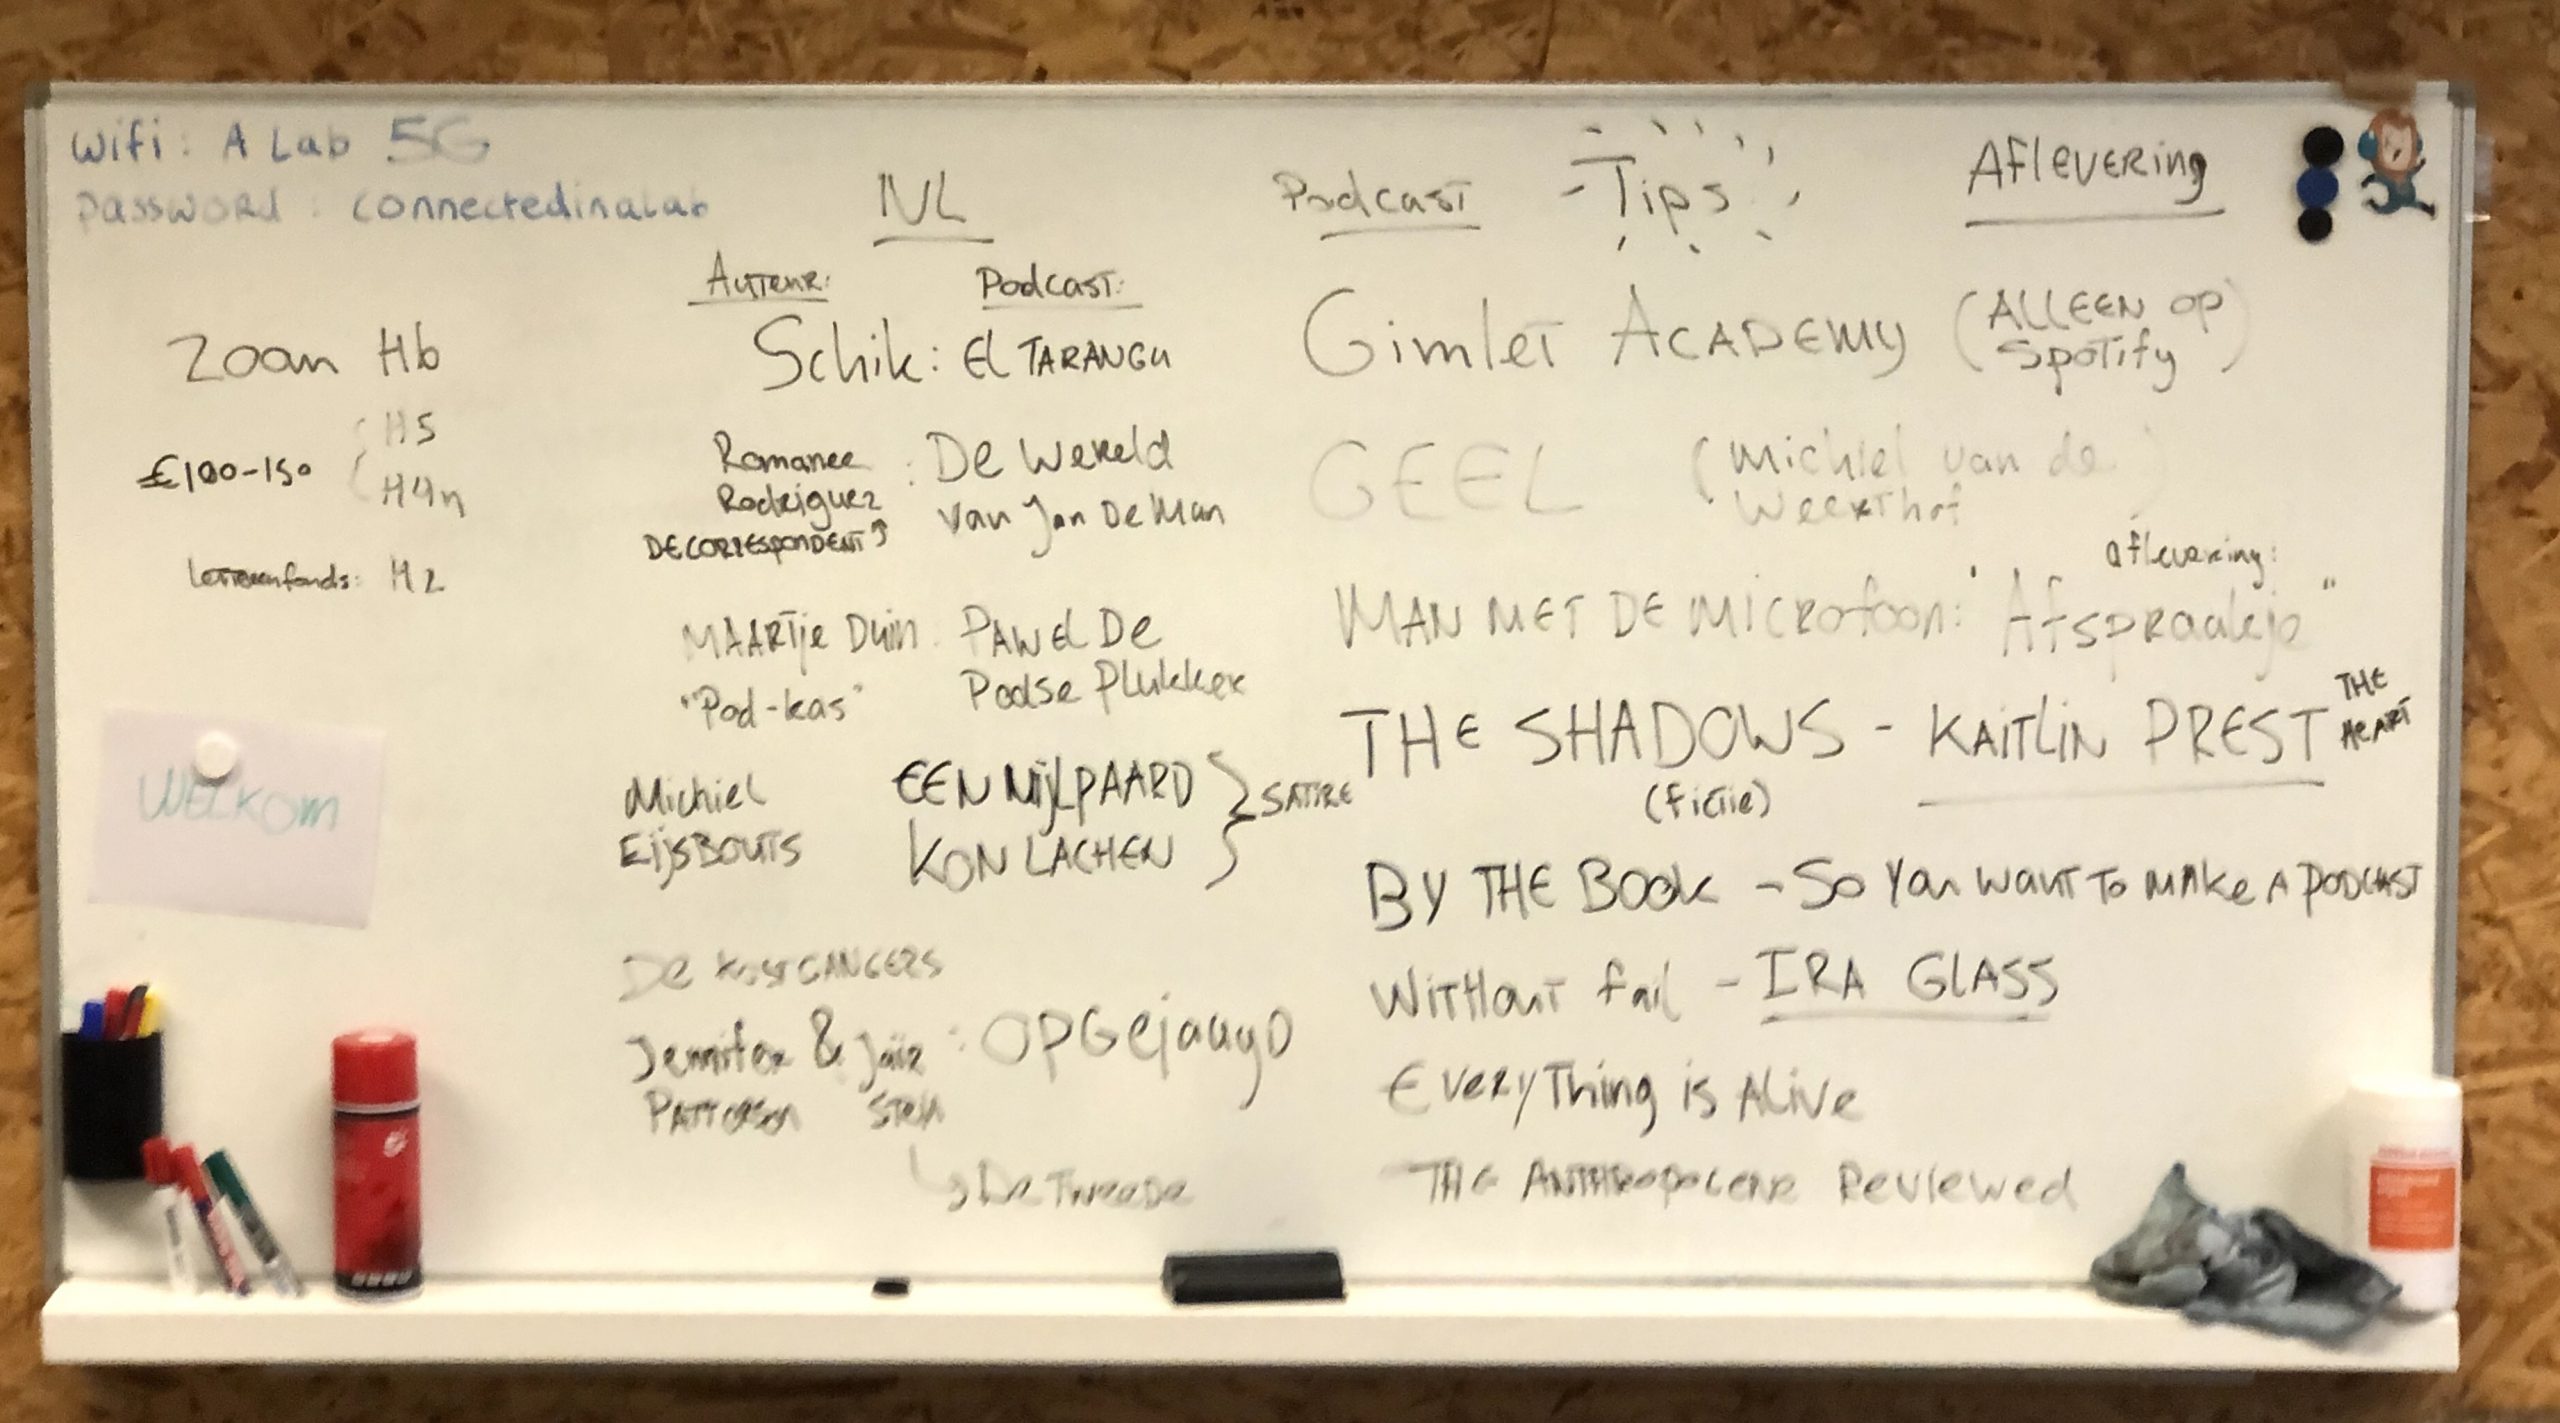 Wifi: A Lab 5G
password: connectedinalab
Zoom H6
H5
€100-150
H4n
Letterenfonds: H2
WELKOM
NL
Auteur: Podcast:
Schik: El TARANGU
Romanee : De Wereld
Rodriguez van Jan De Man
DECORRESPONDENT
MAARTje Duin: PAWEL De
"Pod-kas" Podse Plukker
Michiel EEN NIJLPAARD
EijsBouts KON LACHEN
SATIRE
De KOSTGANGERS
Jennifer & Jaïr : OPGejaagD
PATTERSON STEIN
De Tweede
Podcast Tips Aflevering
Gimlet ACADEMY (ALLEEN op
Spotify)
GEEL (Michiel van de
Weerthof)
aflevering:
MAN MET DE MICROfoon: "Afspraakje"
THE SHADOWS - KAITLIN PREST THE
HEART
(fictie)
BY THE BOOK - So You want To MAKe A PODCAST
WITHOUT fail - IRA GLASS
EveryThing is Alive
THE ANTHROPOCENE Reviewed